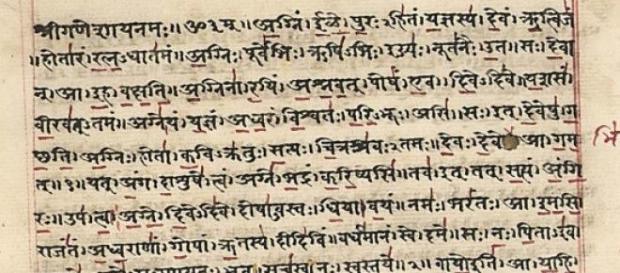 श्रीगणेशायनमः॥ॐ३म्॥अग्निं।ईळे।पुरःऽहितं।यज्ञस्य।देवं।ऋत्विजं
॥होतारं।रत्नऽधातमं॥अग्निः।पूर्वेभिः।ऋषिऽभिः।ईड्यः।नूतनैः।उत॥सः।देवा
न्।आ।इह।वक्षति॥अग्निना।रयिं।अश्नवत्।पोषं।एव।दिवेऽदिवे॥यशसं
वीरवत्ऽतमं॥अग्ने।यं।यज्ञं।अध्वरं।विश्वतः।परिऽभूः।असि॥सः।इत्।देवेषु।ग
च्छति॥अग्निः।होता।कविऽक्रतुः।सत्यः।चित्रश्रवःऽतमः॥देवः।देवे।आ।गम
भिः
त्॥१॥यत्।अंग।दाशुषे।त्वं।अग्ने।भद्रं।करिष्यसि॥तव।इत्।तत्।सत्यं।अंगि
रः॥उप।त्वा।अग्ने।दिवेऽदिवे।दोषाऽवस्तः।धिया।वयं॥नमः।भरंतः।आ।इमसि
राजंतं।अध्वराणां।गोपां।ऋतस्य।दीदिविं॥वर्धमानं।स्वे।दमे॥सः।नः।पिताऽइव
सचस्व।नः।स्वस्तये॥२॥वायोइति।आ।याहि